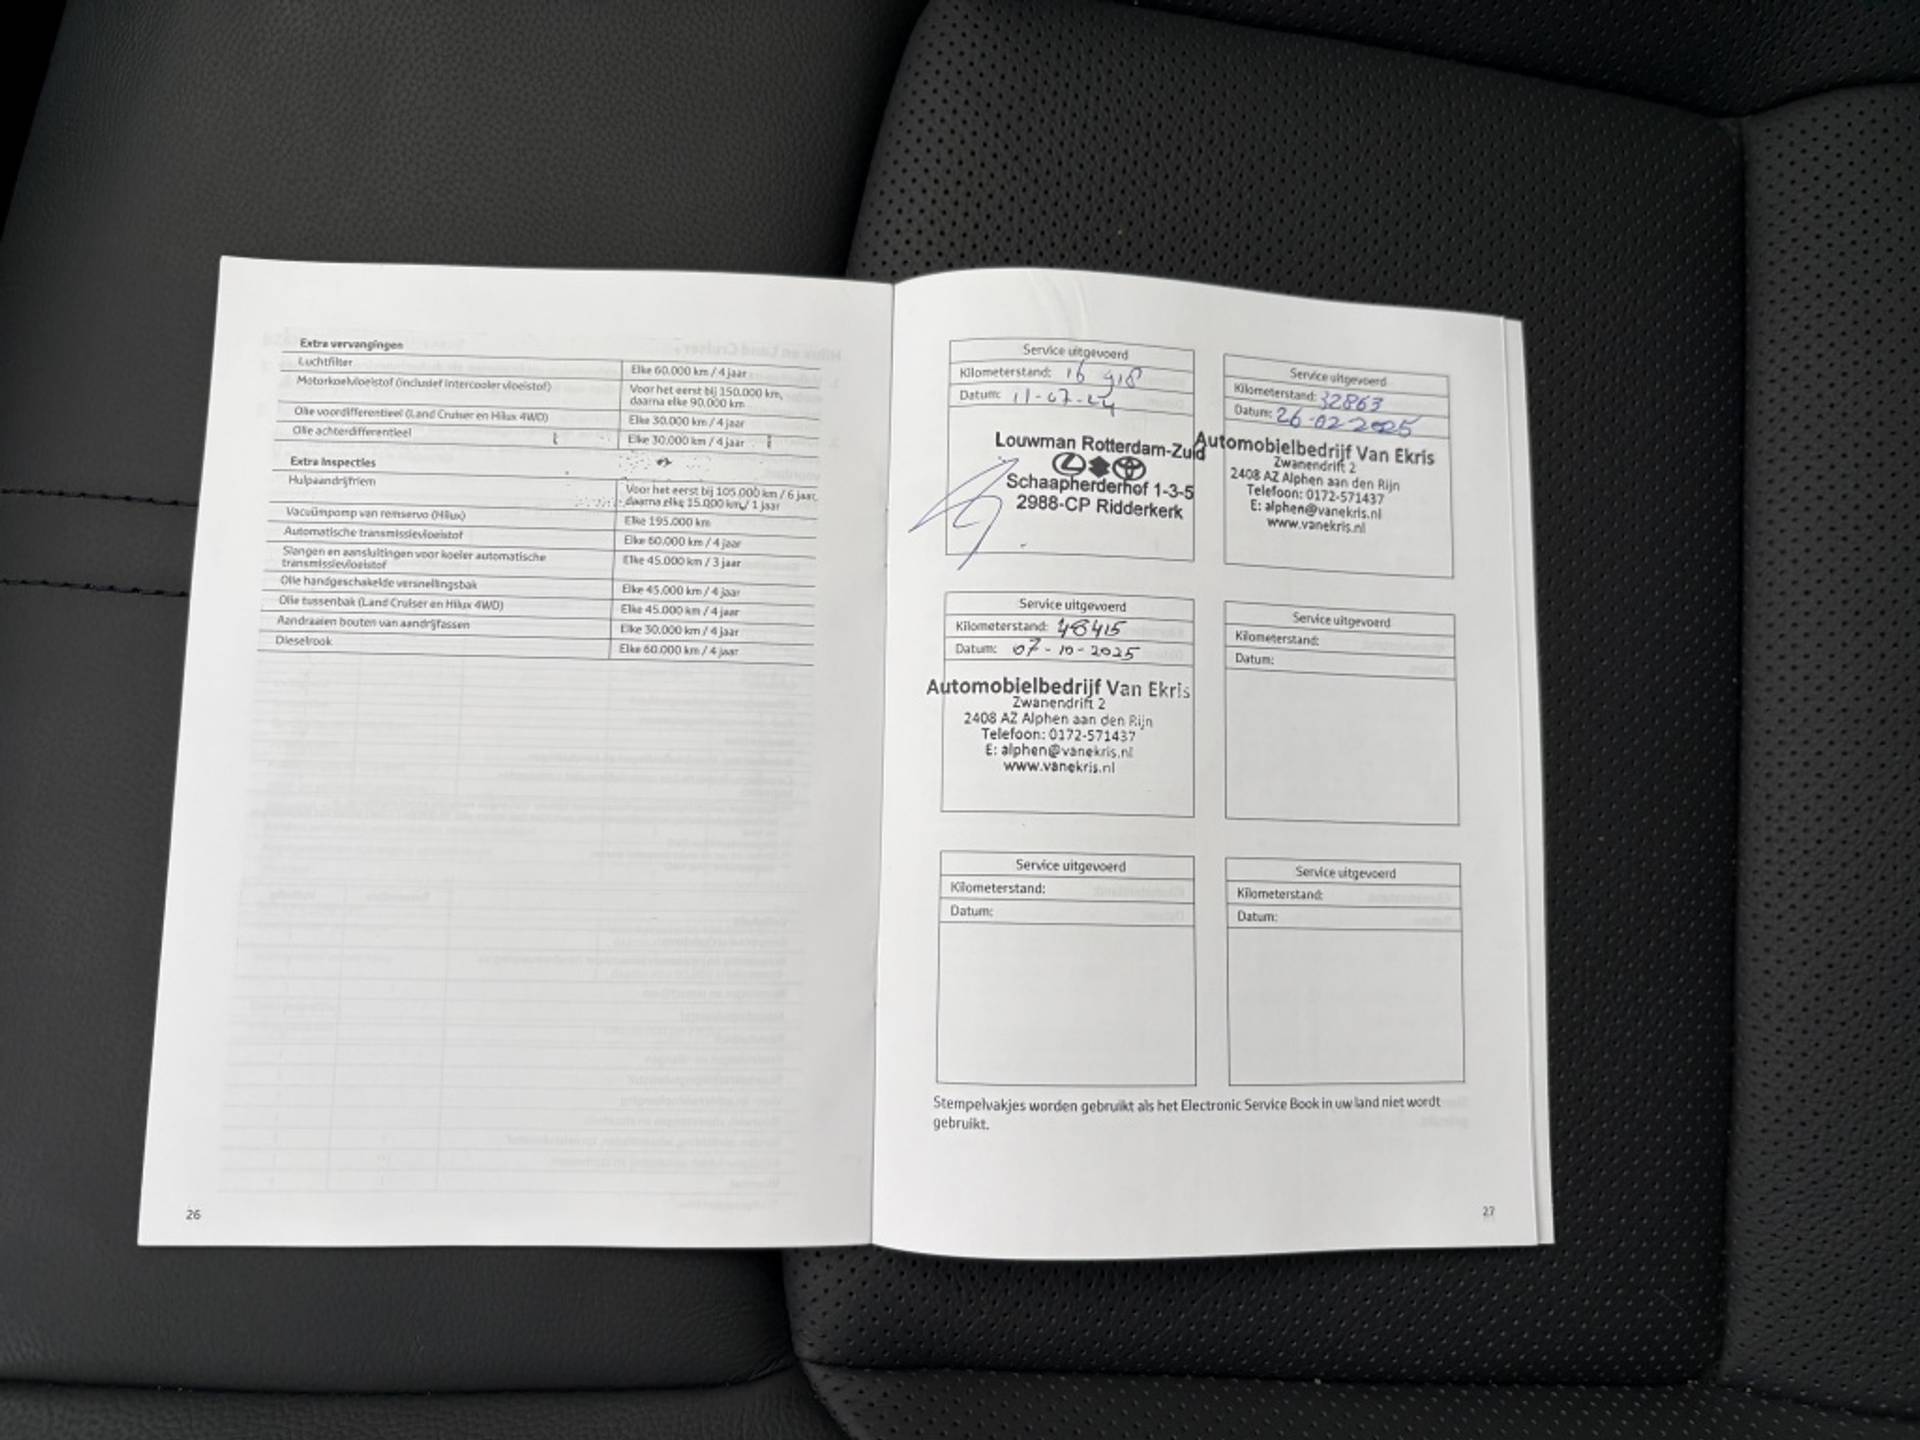 Extra vervangingen
Luchtfilter Elke 60.000 km / 4 jaar
Motorkoelvloeistof (inclusief intercooler vloeistof) Voor het eerst bij 150.000 km,
daarna elke 90.000 km
Olie voordifferentieel (Land Cruiser en Hilux 4WD) Elke 30.000 km / 4 jaar
Olie achterdifferentieel Elke 30.000 km / 4 jaar
Extra Inspecties
Hulpaandrijfriem Voor het eerst bij 105.000 km / 6 jaar,
daarna elke 15.000 km / 1 jaar
Vacuümpomp van remservo (Hilux) Elke 195.000 km
Automatische transmissievloeistof Elke 60.000 km / 4 jaar
Slangen en aansluitingen voor koeler automatische Elke 45.000 km / 3 jaar
transmissievloeistof
Olie handgeschakelde versnellingsbak Elke 45.000 km / 4 jaar
Olie tussenbak (Land Cruiser en Hilux 4WD) Elke 45.000 km / 4 jaar
Aandraaien bouten van aandrijfassen Elke 30.000 km / 4 jaar
Dieselrook Elke 60.000 km / 4 jaar
26
Service uitgevoerd
Kilometerstand: 16 918
Datum: 11-07-24
Louwman Rotterdam-Zuid
Schaapherderhof 1-3-5
2988-CP Ridderkerk
Service uitgevoerd
Kilometerstand: 32863
Datum: 26-02-2025
Automobielbedrijf Van Ekris
Zwanendrift 2
2408 AZ Alphen aan den Rijn
Telefoon: 0172-571437
E: alphen@vanekris.nl
www.vanekris.nl
Service uitgevoerd
Kilometerstand: 48415
Datum: 07-10-2025
Automobielbedrijf Van Ekris
Zwanendrift 2
2408 AZ Alphen aan den Rijn
Telefoon: 0172-571437
E: alphen@vanekris.nl
www.vanekris.nl
Service uitgevoerd
Kilometerstand:
Datum:
Service uitgevoerd
Kilometerstand:
Datum:
Service uitgevoerd
Kilometerstand:
Datum:
Stempelvakjes worden gebruikt als het Electronic Service Book in uw land niet wordt
gebruikt.
27